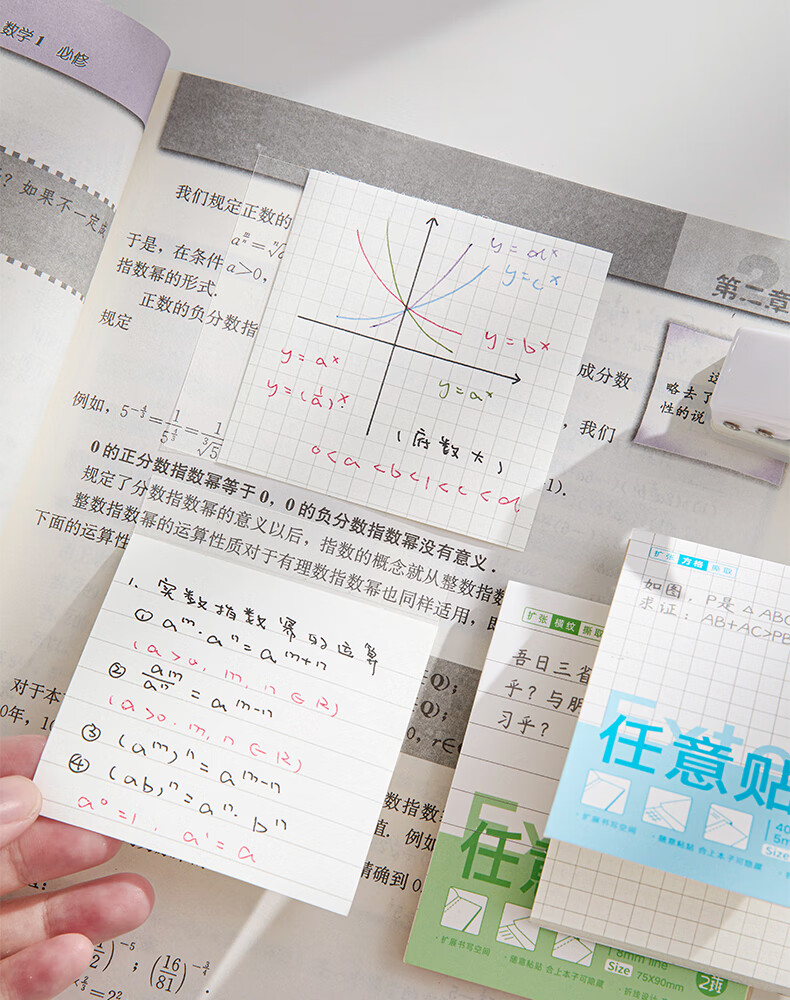 数学1 必修
？如果不一定
第二章
我们规定正数的
于是，在条件
a>0，
指数幂的形式.
正数的负分数指
成分数
规定
，我们
例如，
1).
0的正分数指数幂等于0，0的负分数指数幂没有意义.
规定了分数指数幂的意义以后，指数的概念就从整数指数
整数指数幂的运算性质对于有理数指数幂也同样适用，即
下面的运算性
略去了
性的说
y=dˣ
y=cˣ
y=bˣ
y=aˣ
y=aˣ
y=(1/a)ˣ.
(底数大)
0<a<b<1<c<d
1. 实数指数幂的运算
① aᵐ·aⁿ=aᵐ⁺ⁿ
(a>0, m, n∈R)
② aᵐ/aⁿ=aᵐ⁻ⁿ
(a>0. m, n∈R)
③ (aᵐ)ⁿ=aᵐ⁻ⁿ
④ (ab)ⁿ=aⁿ·bⁿ
a⁰=1, a¹=a
∈Q);
∈Q);
对于本
0年，
数指数
值. 例如
精确到0
)⁻⁵; (16/81)^(-3/4).
=2²
扩张 横纹 撕取
吾日三省
乎？与朋
习乎？
任意
·扩展书写空间 ·随意粘贴 合上本子可隐藏
8mm line
Size 75X90mm
扩张 方格 撕取
如图，P是△ABC
求证：AB+AC>PB
任意贴
·扩展书写空间 ·随意粘贴 合上本子可隐藏
Size